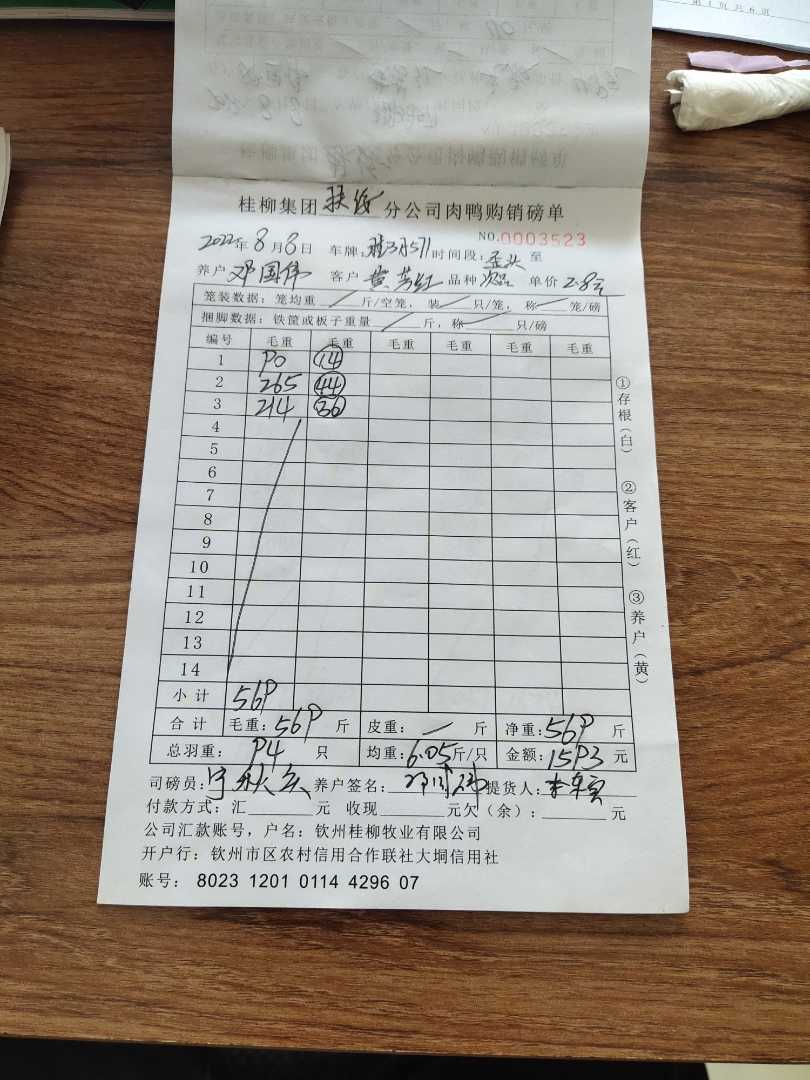 桂柳集团扶绥分公司肉鸭购销磅单
NO.0003523
2022年8月8日 车牌: 时间段: 至
养户 邓国伟 客户 黄芳红 品种 次品 单价 2.8元
笼装数据:笼均重 / 斤/空笼,装 / 只/笼,称 / 笼/磅
捆脚数据:铁筐或板子重量 / 斤,称 / 只/磅
编号 毛重 毛重 毛重 毛重 毛重 毛重
1 90 14
2 265 44
3 214 36
4
5
6
7
8
9
10
11
12
13
14
小计 569
合计 毛重:569斤 皮重: / 斤 净重:569斤
总羽重: 94 只 均重:6.05斤/只 金额:1593元
司磅员: 养户签名:邓国伟 提货人:
付款方式:汇 元 收现 元欠(余): 元
公司汇款账号,户名:钦州桂柳牧业有限公司
开户行:钦州市区农村信用合作联社大垌信用社
账号: 8023 1201 0114 4296 07
①存根(白)
②客户(红)
③养户(黄)
第1页 共6页